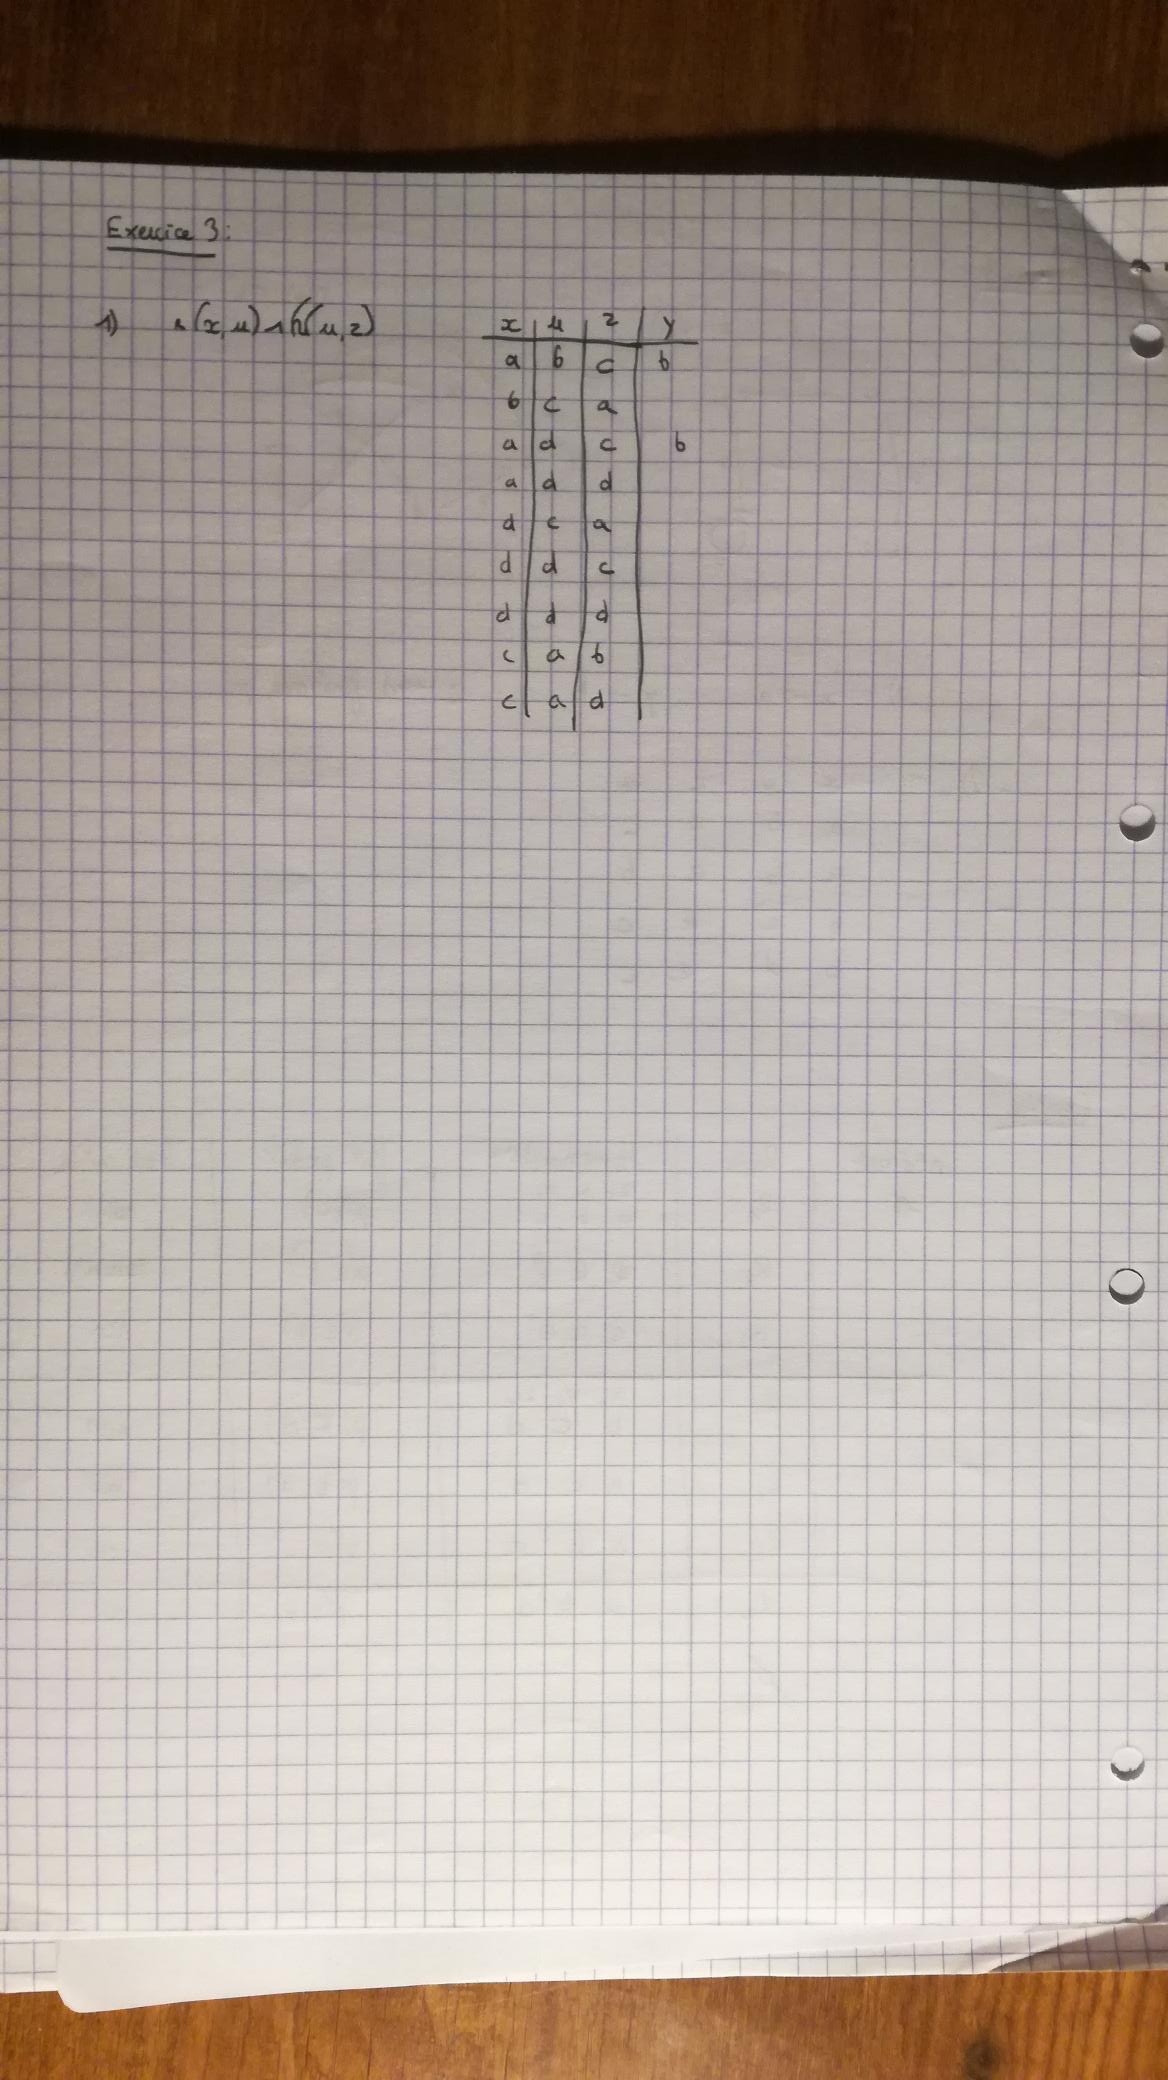 Exercice 3:
1) r(x,u) ∧ r(u,z)
x u z y
a b c b
b c a
a d c b
a d d
d c a
d d c
d d d
c a b
c a d